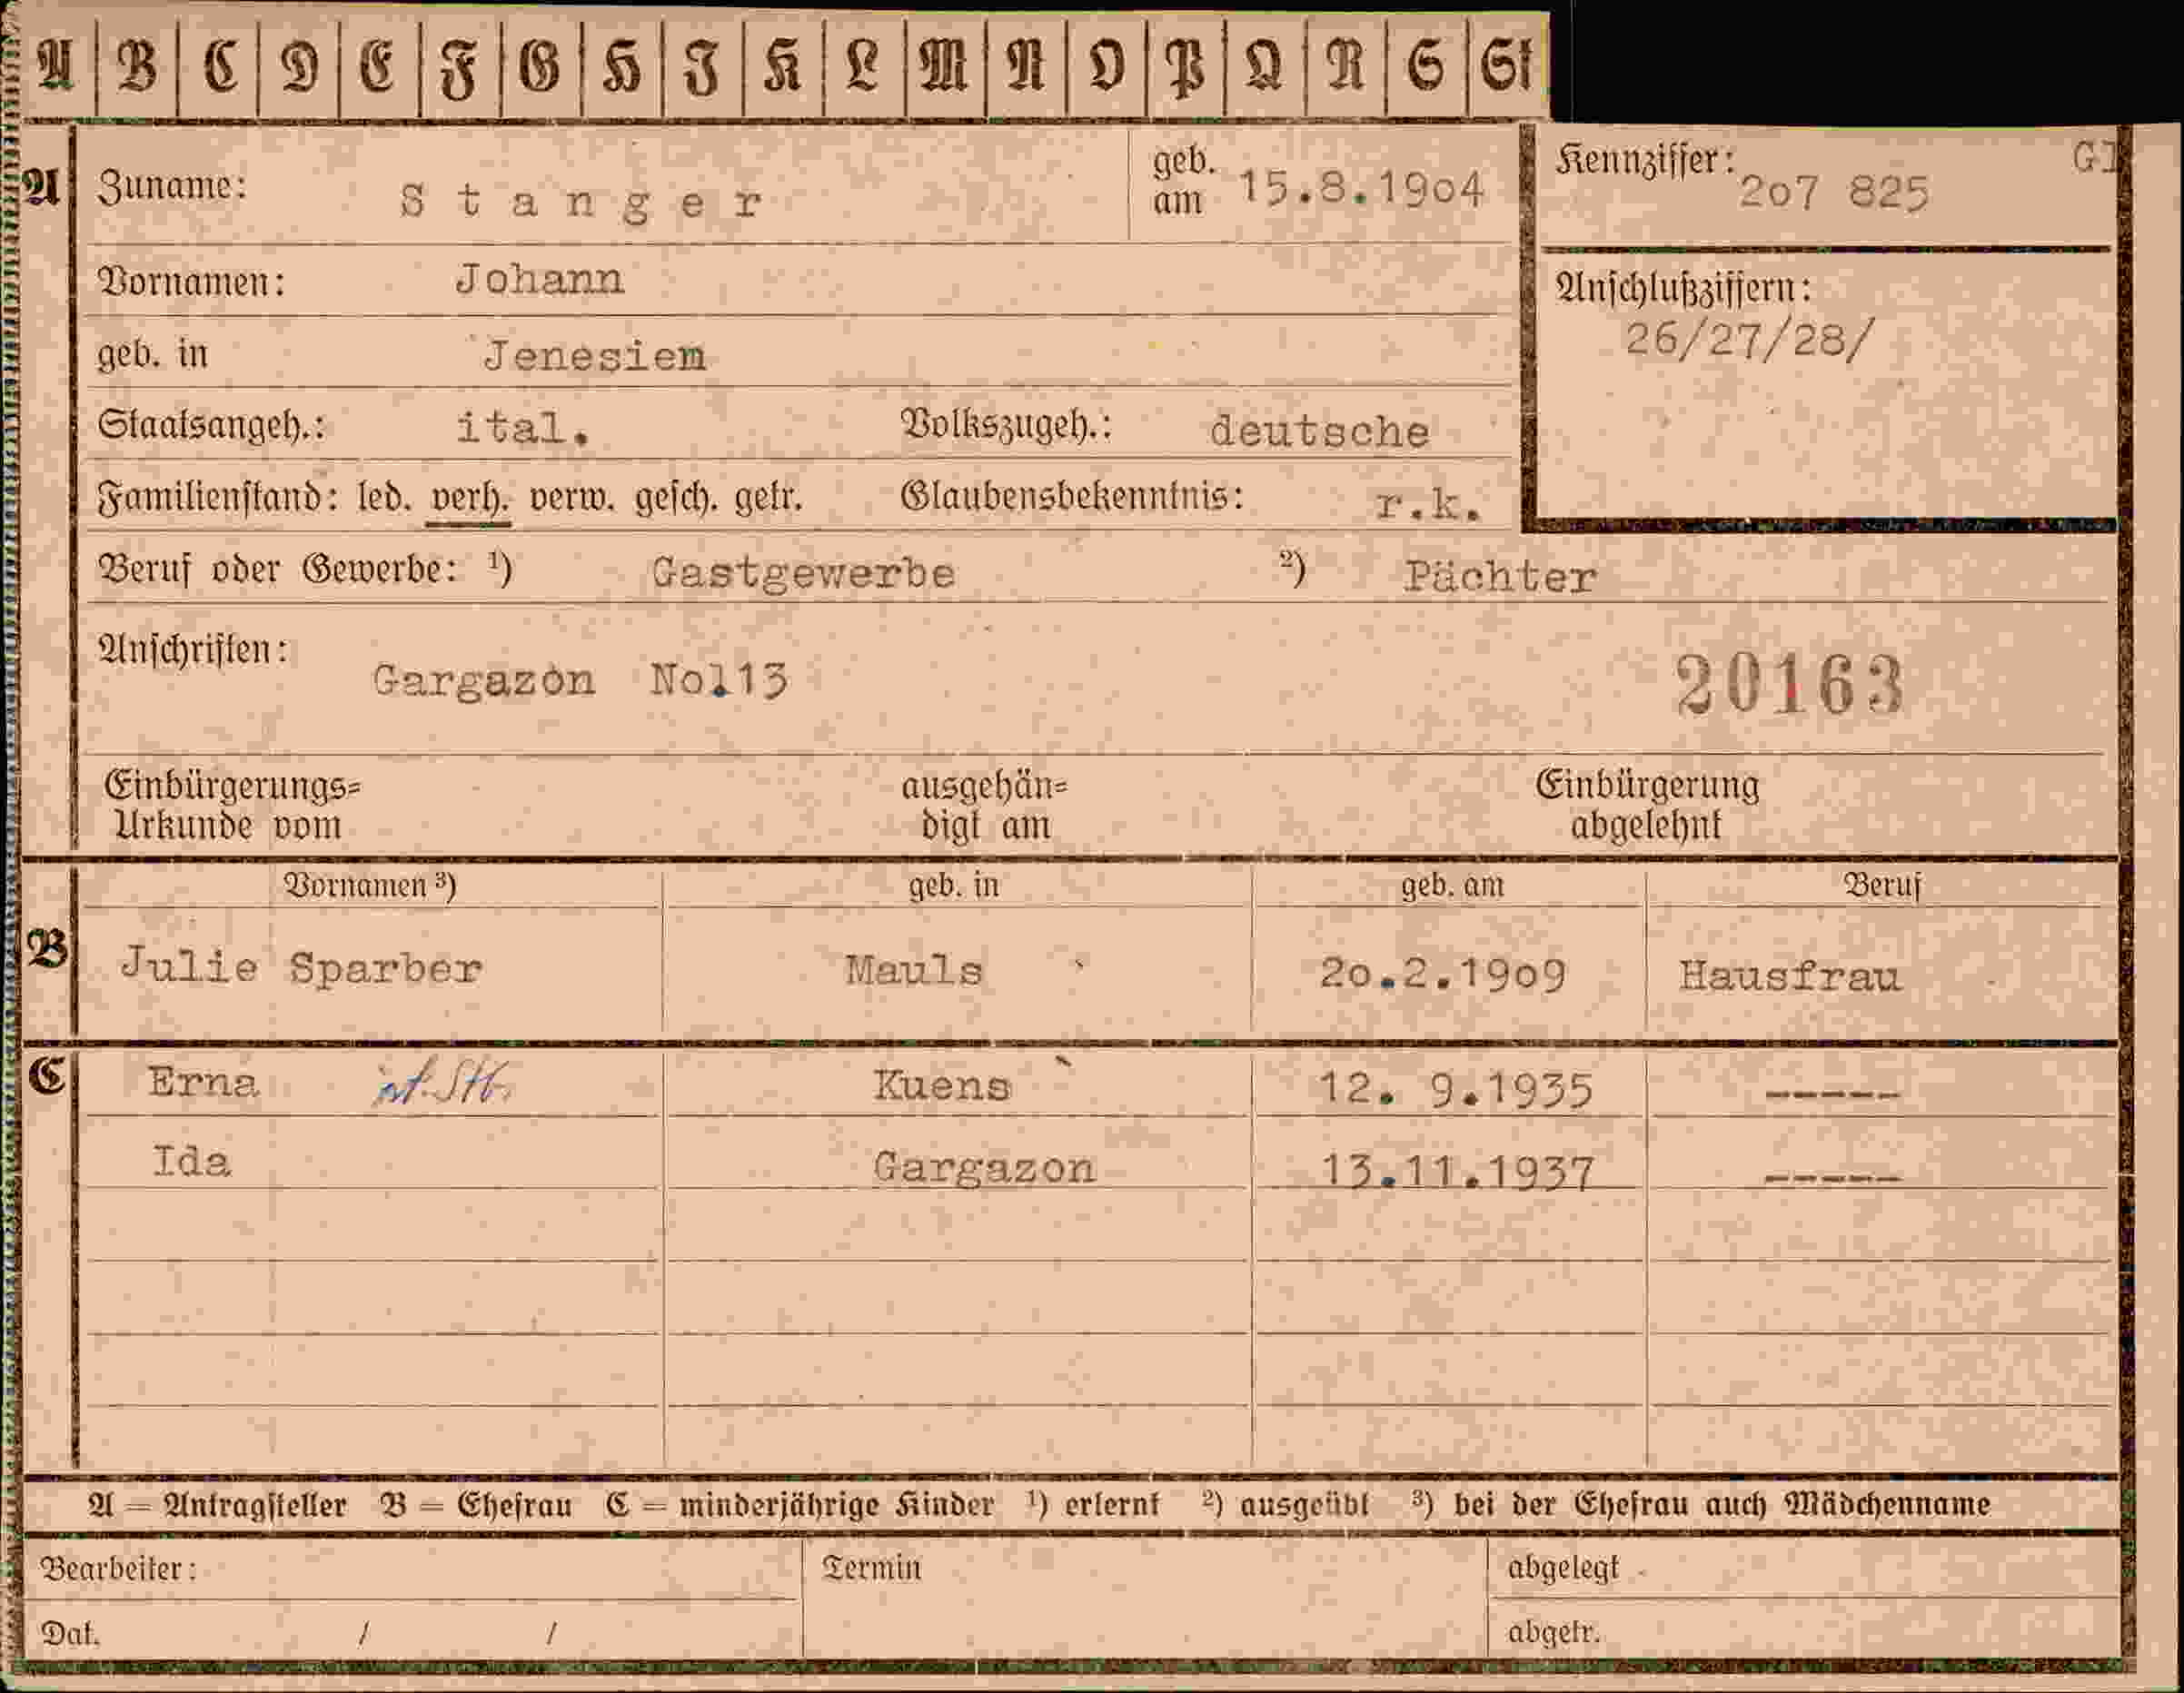 A B C D E F G H I K L M N O P Q R S St
A Zuname: Stanger geb. am 15.8.19o4 Kennziffer: 2o7 825 Gl
Vornamen: Johann Anschlußziffern:
26/27/28/
geb. in Jenesien
Staatsangeh.: ital. Volkszugeh.: deutsche
Familienstand: led. verh. verw. gesch. getr. Glaubensbekenntnis: r.k.
Beruf oder Gewerbe: ¹) Gastgewerbe ²) Pächter
Anschriften: Gargazon No.113 20163
Einbürgerungs= ausgehän= Einbürgerung
Urkunde vom digt am abgelehnt
Vornamen ³) geb. in geb. am Beruf
B Julie Sparber Mauls 2o.2.19o9 Hausfrau
C Erna Kuens 12. 9.1935 -----
Ida Gargazon 13.11.1937 -----
A = Antragsteller B = Ehefrau C = minderjährige Kinder ¹) erlernt ²) ausgeübt ³) bei der Ehefrau auch Mädchenname
Bearbeiter: Termin abgelegt
Dat. / / abgetr.